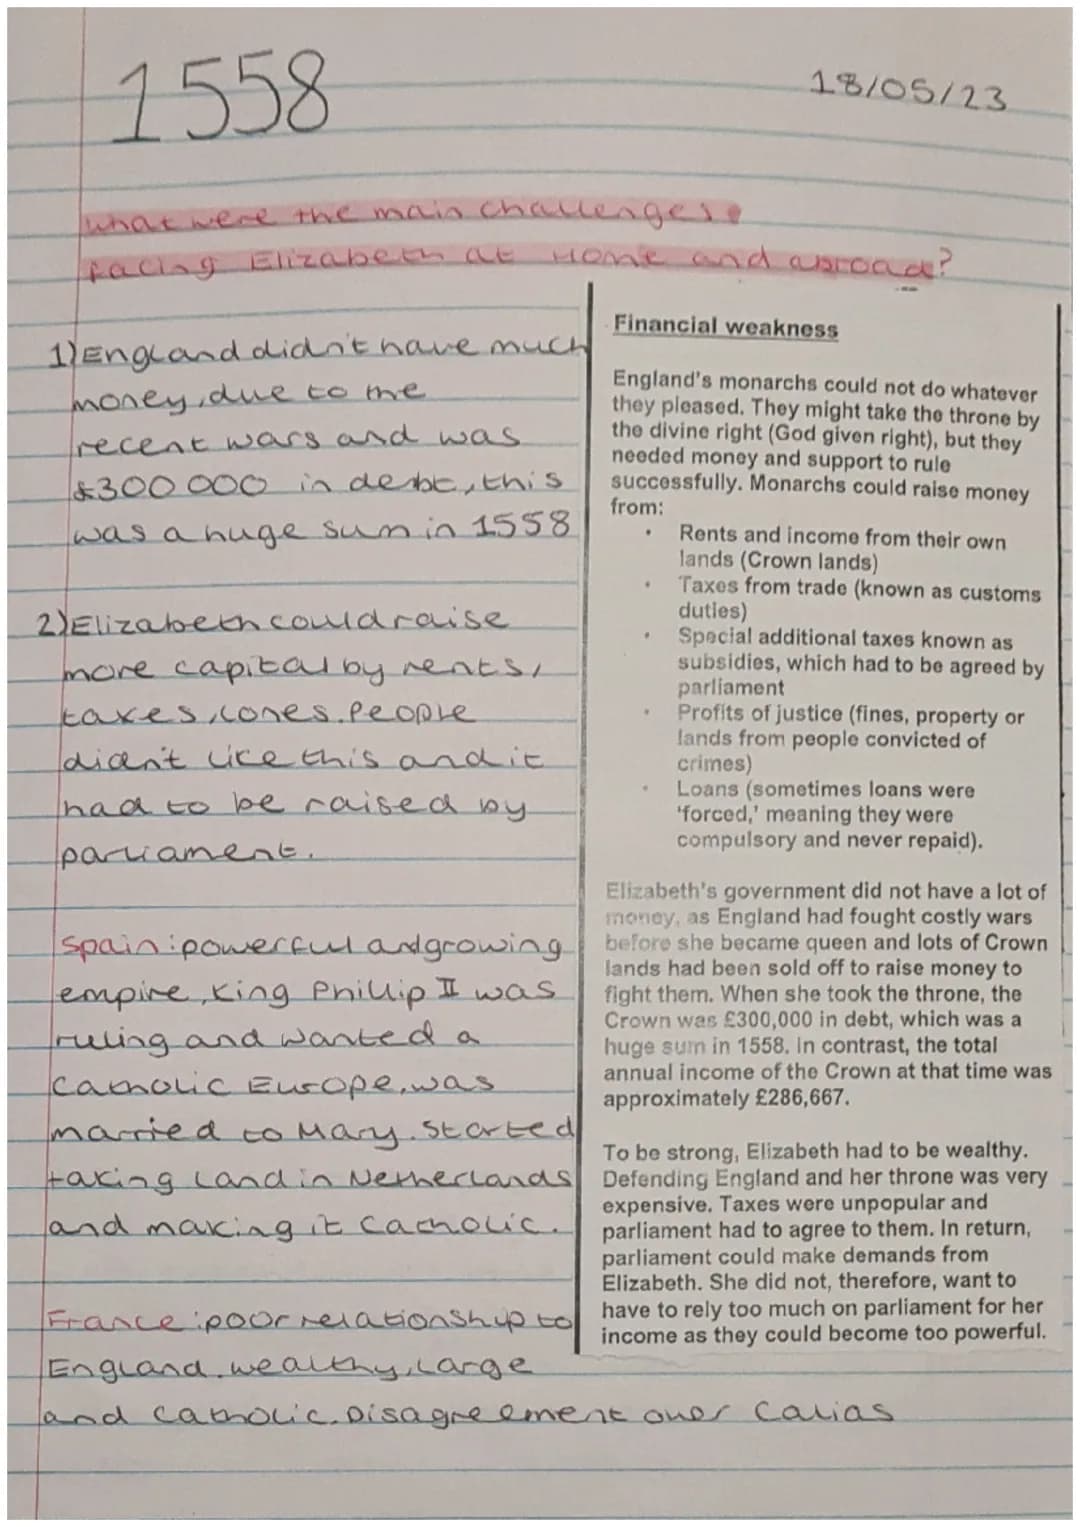 1558
18/05/23
What were the main challenges
facing Elizabeth at Home and abroad?
1) England didn't have much
money, due to the
recent wars and was
£300 000 in debt, this
was a huge sum in 1558
2) Elizabeth could raise
more capital by rents,
taxes, lones. People
didn't like this and it
had to be raised by
parliament.
Spain: powerful and growing
empire, King Phillip II was
ruling and wanted a
Catholic Europe, was
married to Mary. Started
taking land in Netherlands
and making it Catholic.
France: poor relationship to
England. wealthy, large
and Catholic. Disagreement over Calias
Financial weakness
England's monarchs could not do whatever
they pleased. They might take the throne by
the divine right (God given right), but they
needed money and support to rule
successfully. Monarchs could raise money
from:
• Rents and income from their own
lands (Crown lands)
• Taxes from trade (known as customs
duties)
• Special additional taxes known as
subsidies, which had to be agreed by
parliament
• Profits of justice (fines, property or
lands from people convicted of
crimes)
• Loans (sometimes loans were
'forced,' meaning they were
compulsory and never repaid).
Elizabeth's government did not have a lot of
money, as England had fought costly wars
before she became queen and lots of Crown
lands had been sold off to raise money to
fight them. When she took the throne, the
Crown was £300,000 in debt, which was a
huge sum in 1558. In contrast, the total
annual income of the Crown at that time was
approximately £286,667.
To be strong, Elizabeth had to be wealthy.
Defending England and her throne was very
expensive. Taxes were unpopular and
parliament had to agree to them. In return,
parliament could make demands from
Elizabeth. She did not, therefore, want to
have to rely too much on parliament for her
income as they could become too powerful.